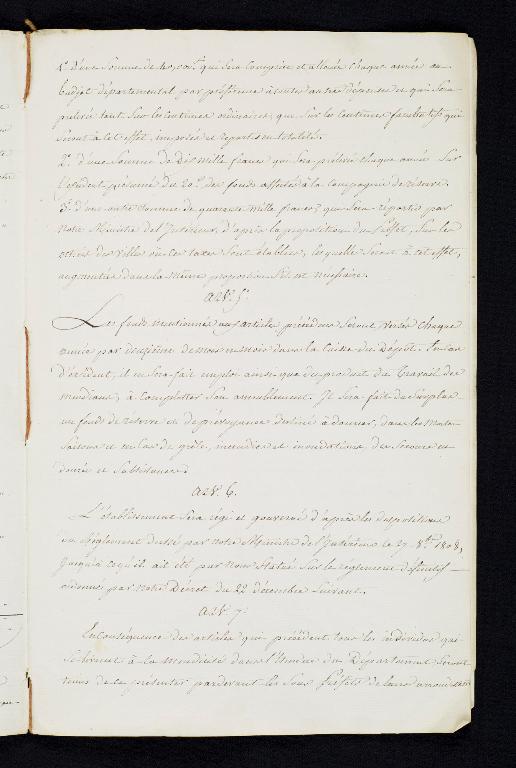 1.° d'une Somme de qui Sera Comprise et allouée chaque année au
budget départemental par préférence à toutes autres dépenses et qui Sera
prélevée tant Sur les centimes ordinaires, que Sur les Centimes facultatifs qui
Seront à cet effet, imposés et repartis en totalité.
2.° d'une Somme de Dix mille francs qui Sera prélevée chaque année Sur
l'excédent présumé du 20.e des fonds affectés à la Compagnie de réserve.
3.° d'une autre Somme de quarante mille francs, que Sera répartie par
notre Ministre de l'Intérieur d'après la proposition du Préfet, Sur les
octrois des villes où ces taxes Sont établies, lesquelles Seront à cet effet,
augmentées dans la même proportion S'il est nécessaire.
Art. 5.
Les fonds mentionnés aux articles précédens Seront versés chaque
année par douzième de mois en mois dans la Caisse du Dépôt. En cas
d'excédent, il en Sera fait emploi ainsi que du produit du Travail des
mendians, à completter Son ameublement. Il Sera fait du Surplus
un fonds de réserve et de prévoyance destiné à donner, dans les morte
Saisons et en Cas de grêle, incendies et inondations des Secours en
denrée et Subsistances.
Art. 6.
L'établissement Sera régi et gouverné d'après les dispositions
du Règlement dressé par notre Ministre de l'Intérieur le 27 8.bre 1808,
jusqu'à ce qu'il ait été par nous Statué Sur le règlement définitif
ordonné par notre Décret du 22 décembre Suivant.
Art. 7.
En conséquence des articles qui précédent tous les individus qui
Se livrent à la mendicité dans l'étendue du Département Seront
tenus de se présenter pardevant les Sous Préfets de leurs arrondissem